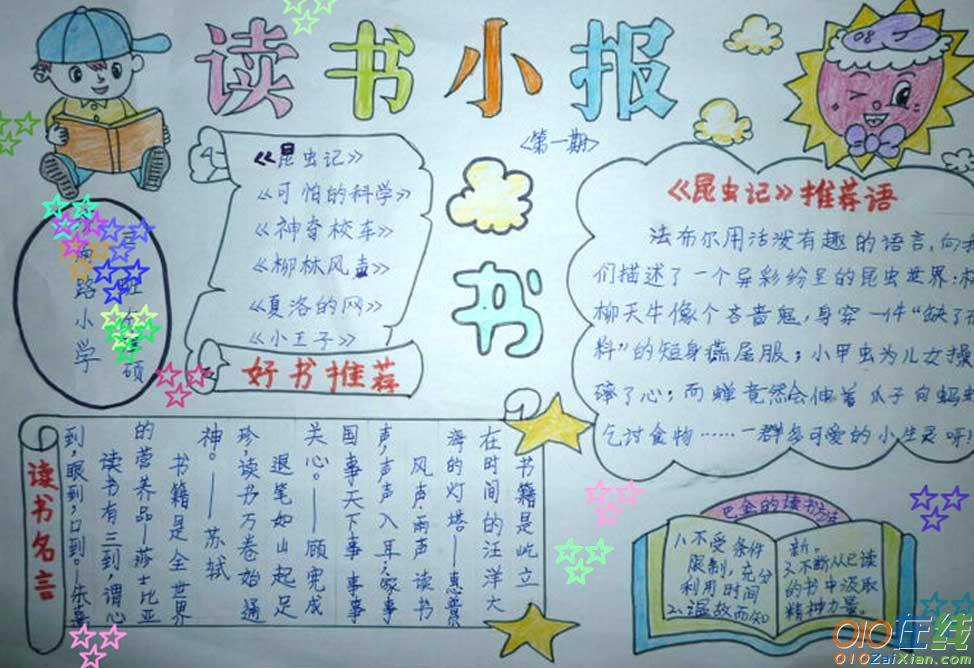 读书小报
<第一期>
《昆虫记》
《可怕的科学》
《神奇校车》
《柳林风声》
《夏洛的网》
《小王子》
好书推荐
路小学
硕
书
《昆虫记》推荐语
法布尔用活泼有趣的语言,向我
们描述了一个异彩纷呈的昆虫世界:
柳天牛像个吝啬鬼,身穿一件“缺了布
料”的短身燕尾服;小甲虫为儿女操
碎了心;而蝉竟然会伸着爪子向蚂蚁
乞讨食物……一群多可爱的小生灵呀
读书名言
书籍是屹立
在时间的汪洋大
海的灯塔。——惠普
风声雨声读书
声,声声入耳;家事
国事天下事事事
关心。——顾宪成
退笔如山起足
珍,读书万卷始通
神。——苏轼
书籍是全世界
的营养品——莎士比亚
读书有三到,谓心
到,眼到,口到。——朱熹
巴金的读书方法
1.不受条件
限制,充分
利用时间
2.温故而知
新。
3.不断从已读
的书中汲取
精神力量。
08
010在线
010ZaiXian.com